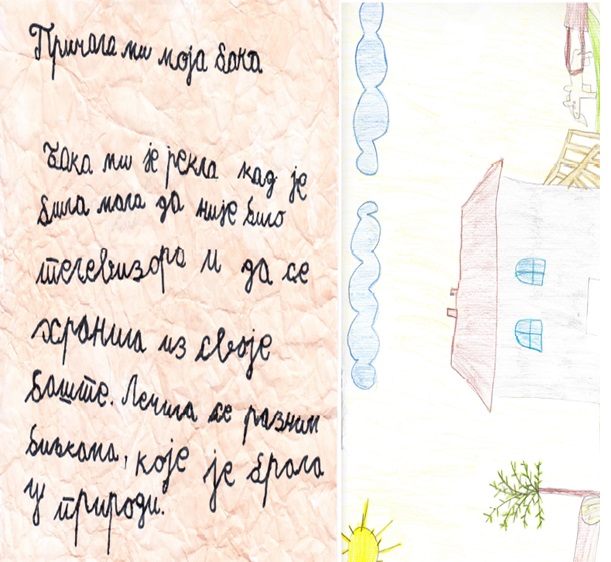 Причала ми моја бака
Бака ми је рекла кад је
била мала да није било
телевизора и да се
хранила из своје
баште. Лечила се разним
биљкама, које је брала
у природи.